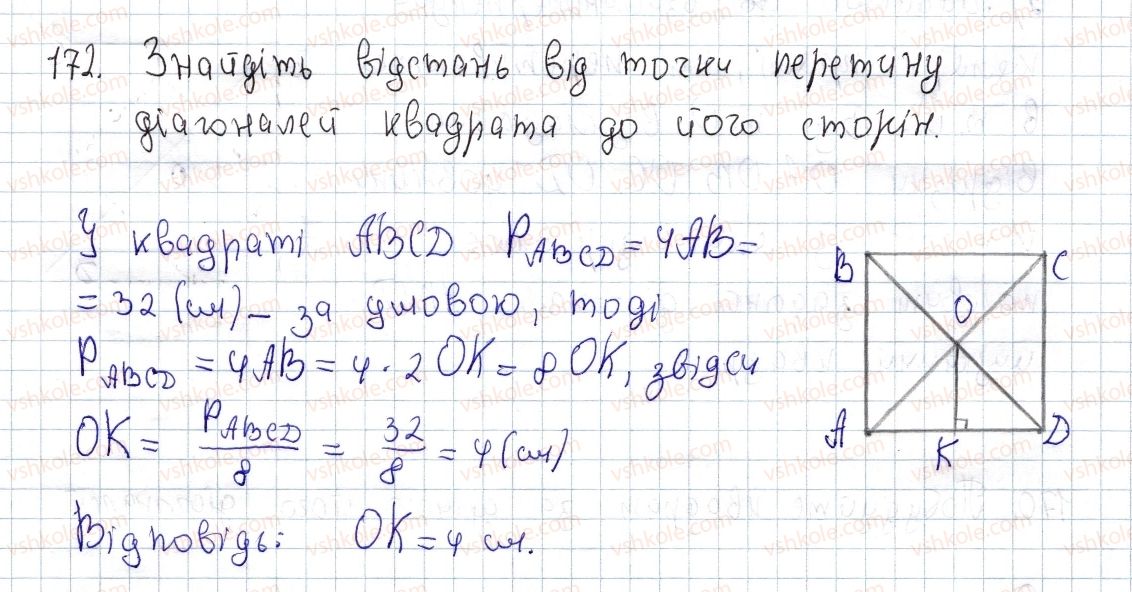 172. Знайдіть відстань від точки перетину
діагоналей квадрата до його сторін.
У квадраті ABCD P_ABCD = 4AB =
= 32 (см) – за умовою, тоді
P_ABCD = 4AB = 4 · 2 OK = 8 OK, звідси
OK = P_ABCD / 8 = 32 / 8 = 4 (см)
Відповідь: OK = 4 см.
B C
O
A K D